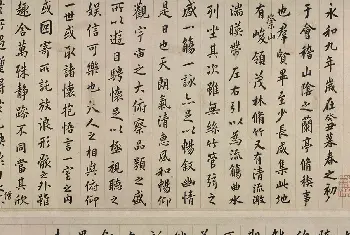 永和九年歲在癸丑暮春之初
于會稽山陰之蘭亭脩禊事
也羣賢畢至少長咸集此地
有崇山峻領茂林脩竹又有清流激
湍暎帶左右引以為流觴曲水
列坐其次雖無絲竹管弦之
盛一觴一詠亦足以暢敘幽情
是日也天朗氣清惠風和暢仰
觀宇宙之大俯察品類之盛
所以遊目騁懷足以極視聽之
娛信可樂也夫人之相與俯仰
一世或取諸懷抱悟言一室之內
或因寄所託放浪形骸之外雖
趣舍萬殊靜躁不同當其欣